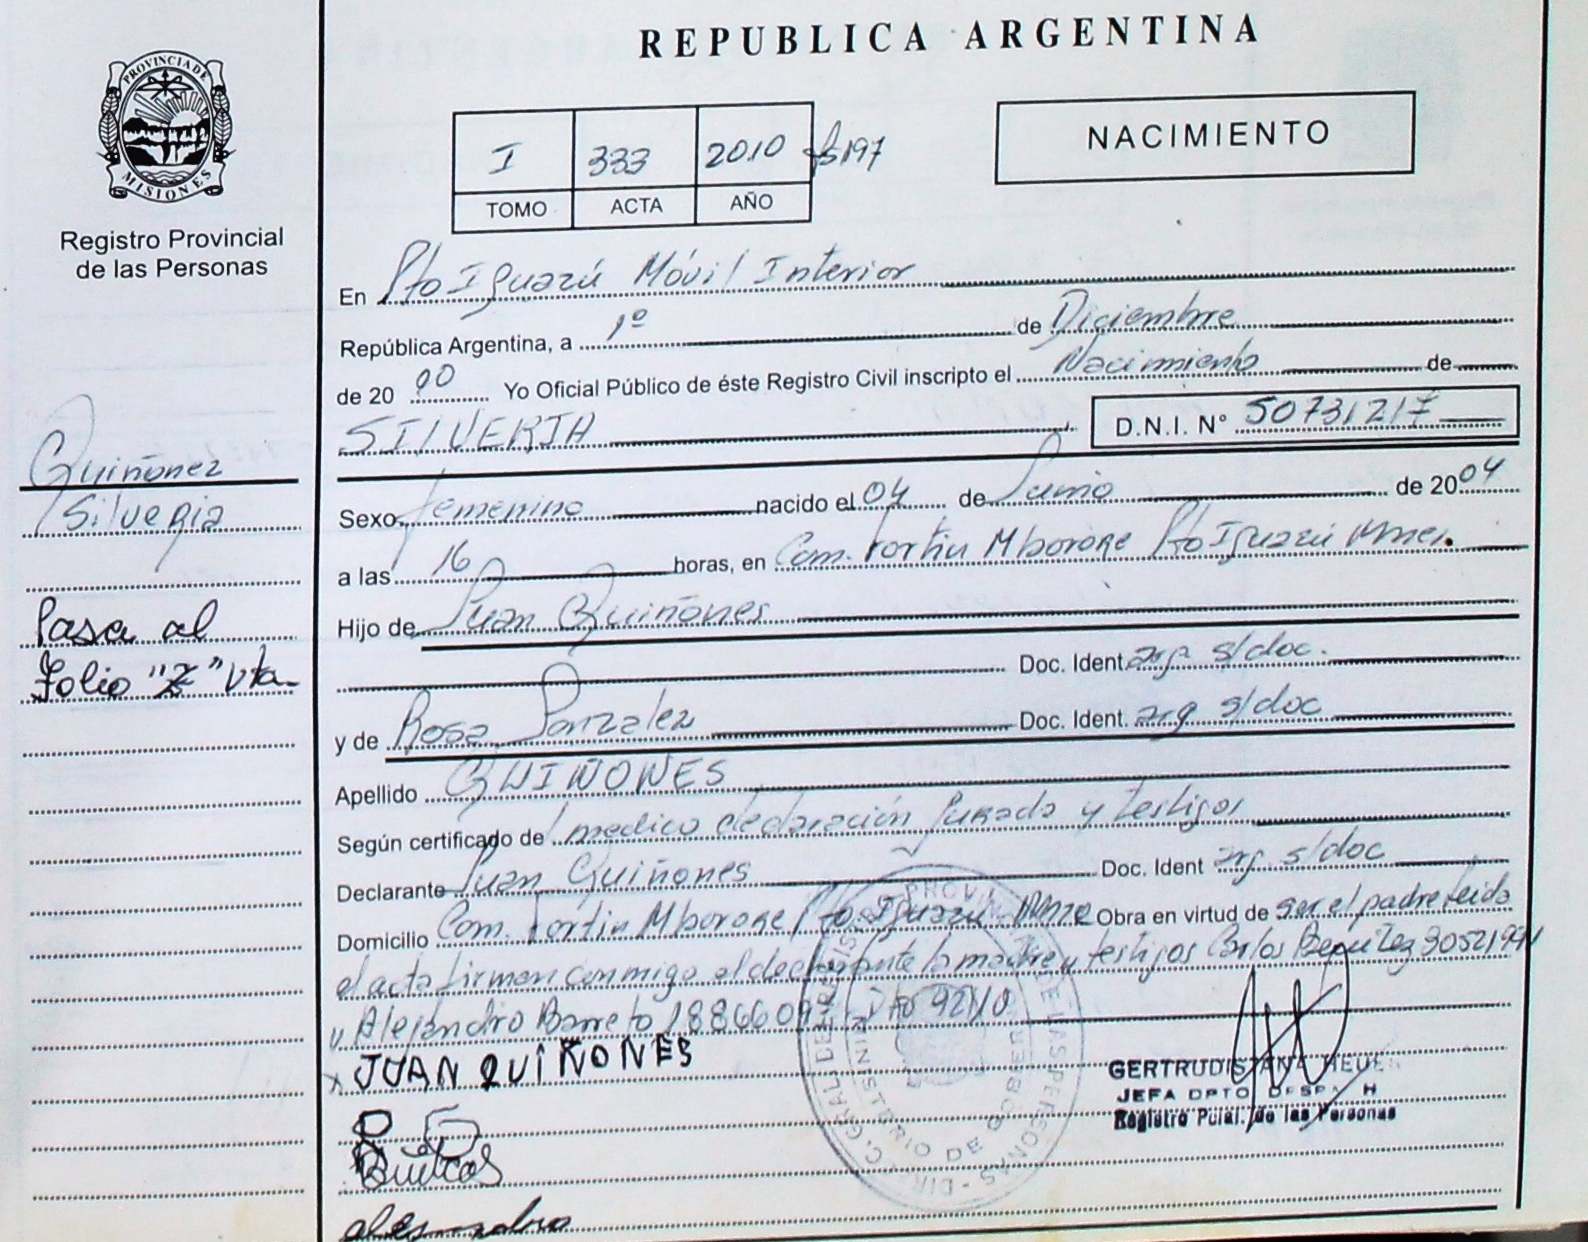 REPUBLICA ARGENTINA
PROVINCIA DE
MISIONES
Registro Provincial
de las Personas
I 333 2010 fs197
TOMO ACTA AÑO
NACIMIENTO
En Pto Iguazú Móvil Interior
República Argentina, a 1º de Diciembre
de 20 Yo Oficial Público de éste Registro Civil inscripto el Nacimiento de
SILVERIA D.N.I. Nº 50731217
Quiñonez
Silveria
Pasa al
Folio "Z" vta
Sexo femenino nacido el 04 de Junio de 2004
a las 16 horas, en Com. Fortin Mborore Pto Iguazú Mnes.
Hijo de Juan Quiñones
Doc. Ident. arg. s/doc.
y de Rosa Gonzalez Doc. Ident. arg s/doc
Apellido QUIÑONES
Según certificado de medico declaración Jurada y testigos
Declarante Juan Quiñones Doc. Ident arg s/doc
Domicilio Com. Fortin Mborore Pto. Iguazú Obra en virtud de ser el padre leida
el acta firman conmigo el declarante la madre y testigos Carlos Benitez
y Alejandro Barreto
x JUAN QUIÑONES
GERTRUDIS ANA
JEFA DPTO
Registro de las Personas
MINISTERIO DE GOBIERNO